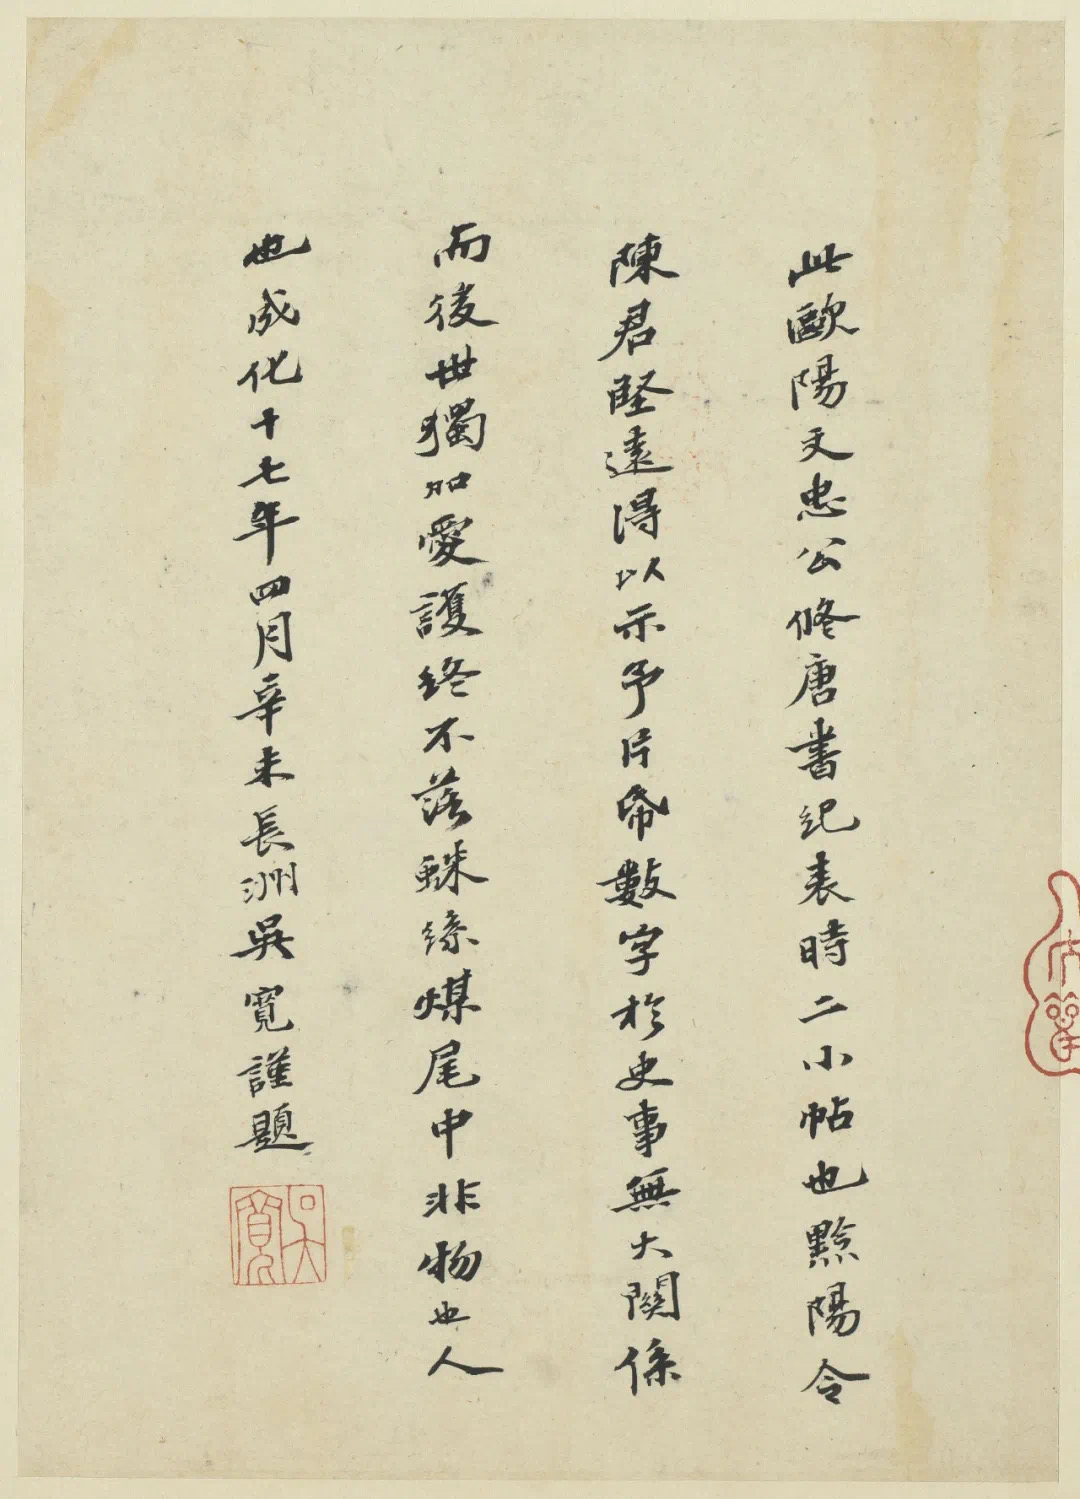 此歐陽文忠公脩唐書紀表時二小帖也黟陽令
陳君堅遠得以示予片帋數字於史事無大關係
而後世獨加愛護終不落蛛絲煤尾中非物也人
也成化十七年四月辛未長洲吳寬謹題
吳寬